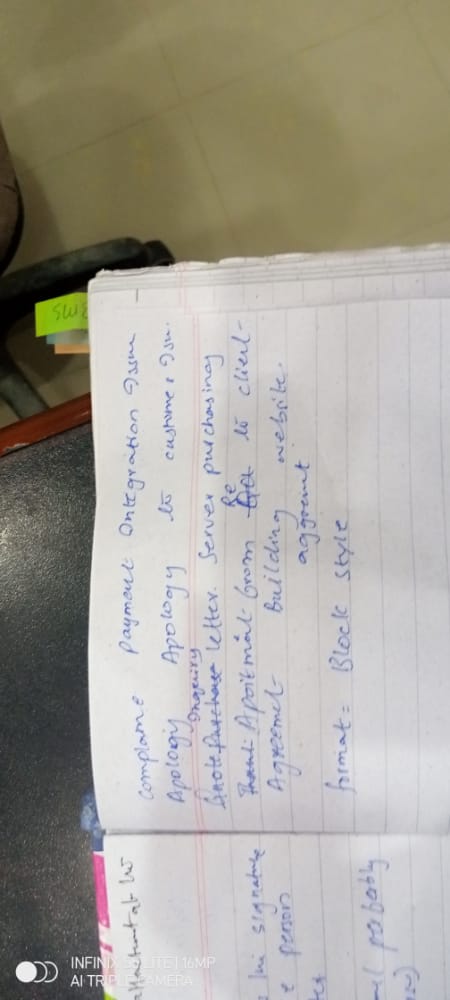 Complane Payment Integration Issue
Apology Apology to customer Issu.
Inquiry
letter. Server purchasing
Apoitmat from Re to client-
Agreemet- Building website
aggremt
format = Block style
signature
person
SMS
INFINIX S5 LITE | 16MP
AI TRIPLE CAMERA